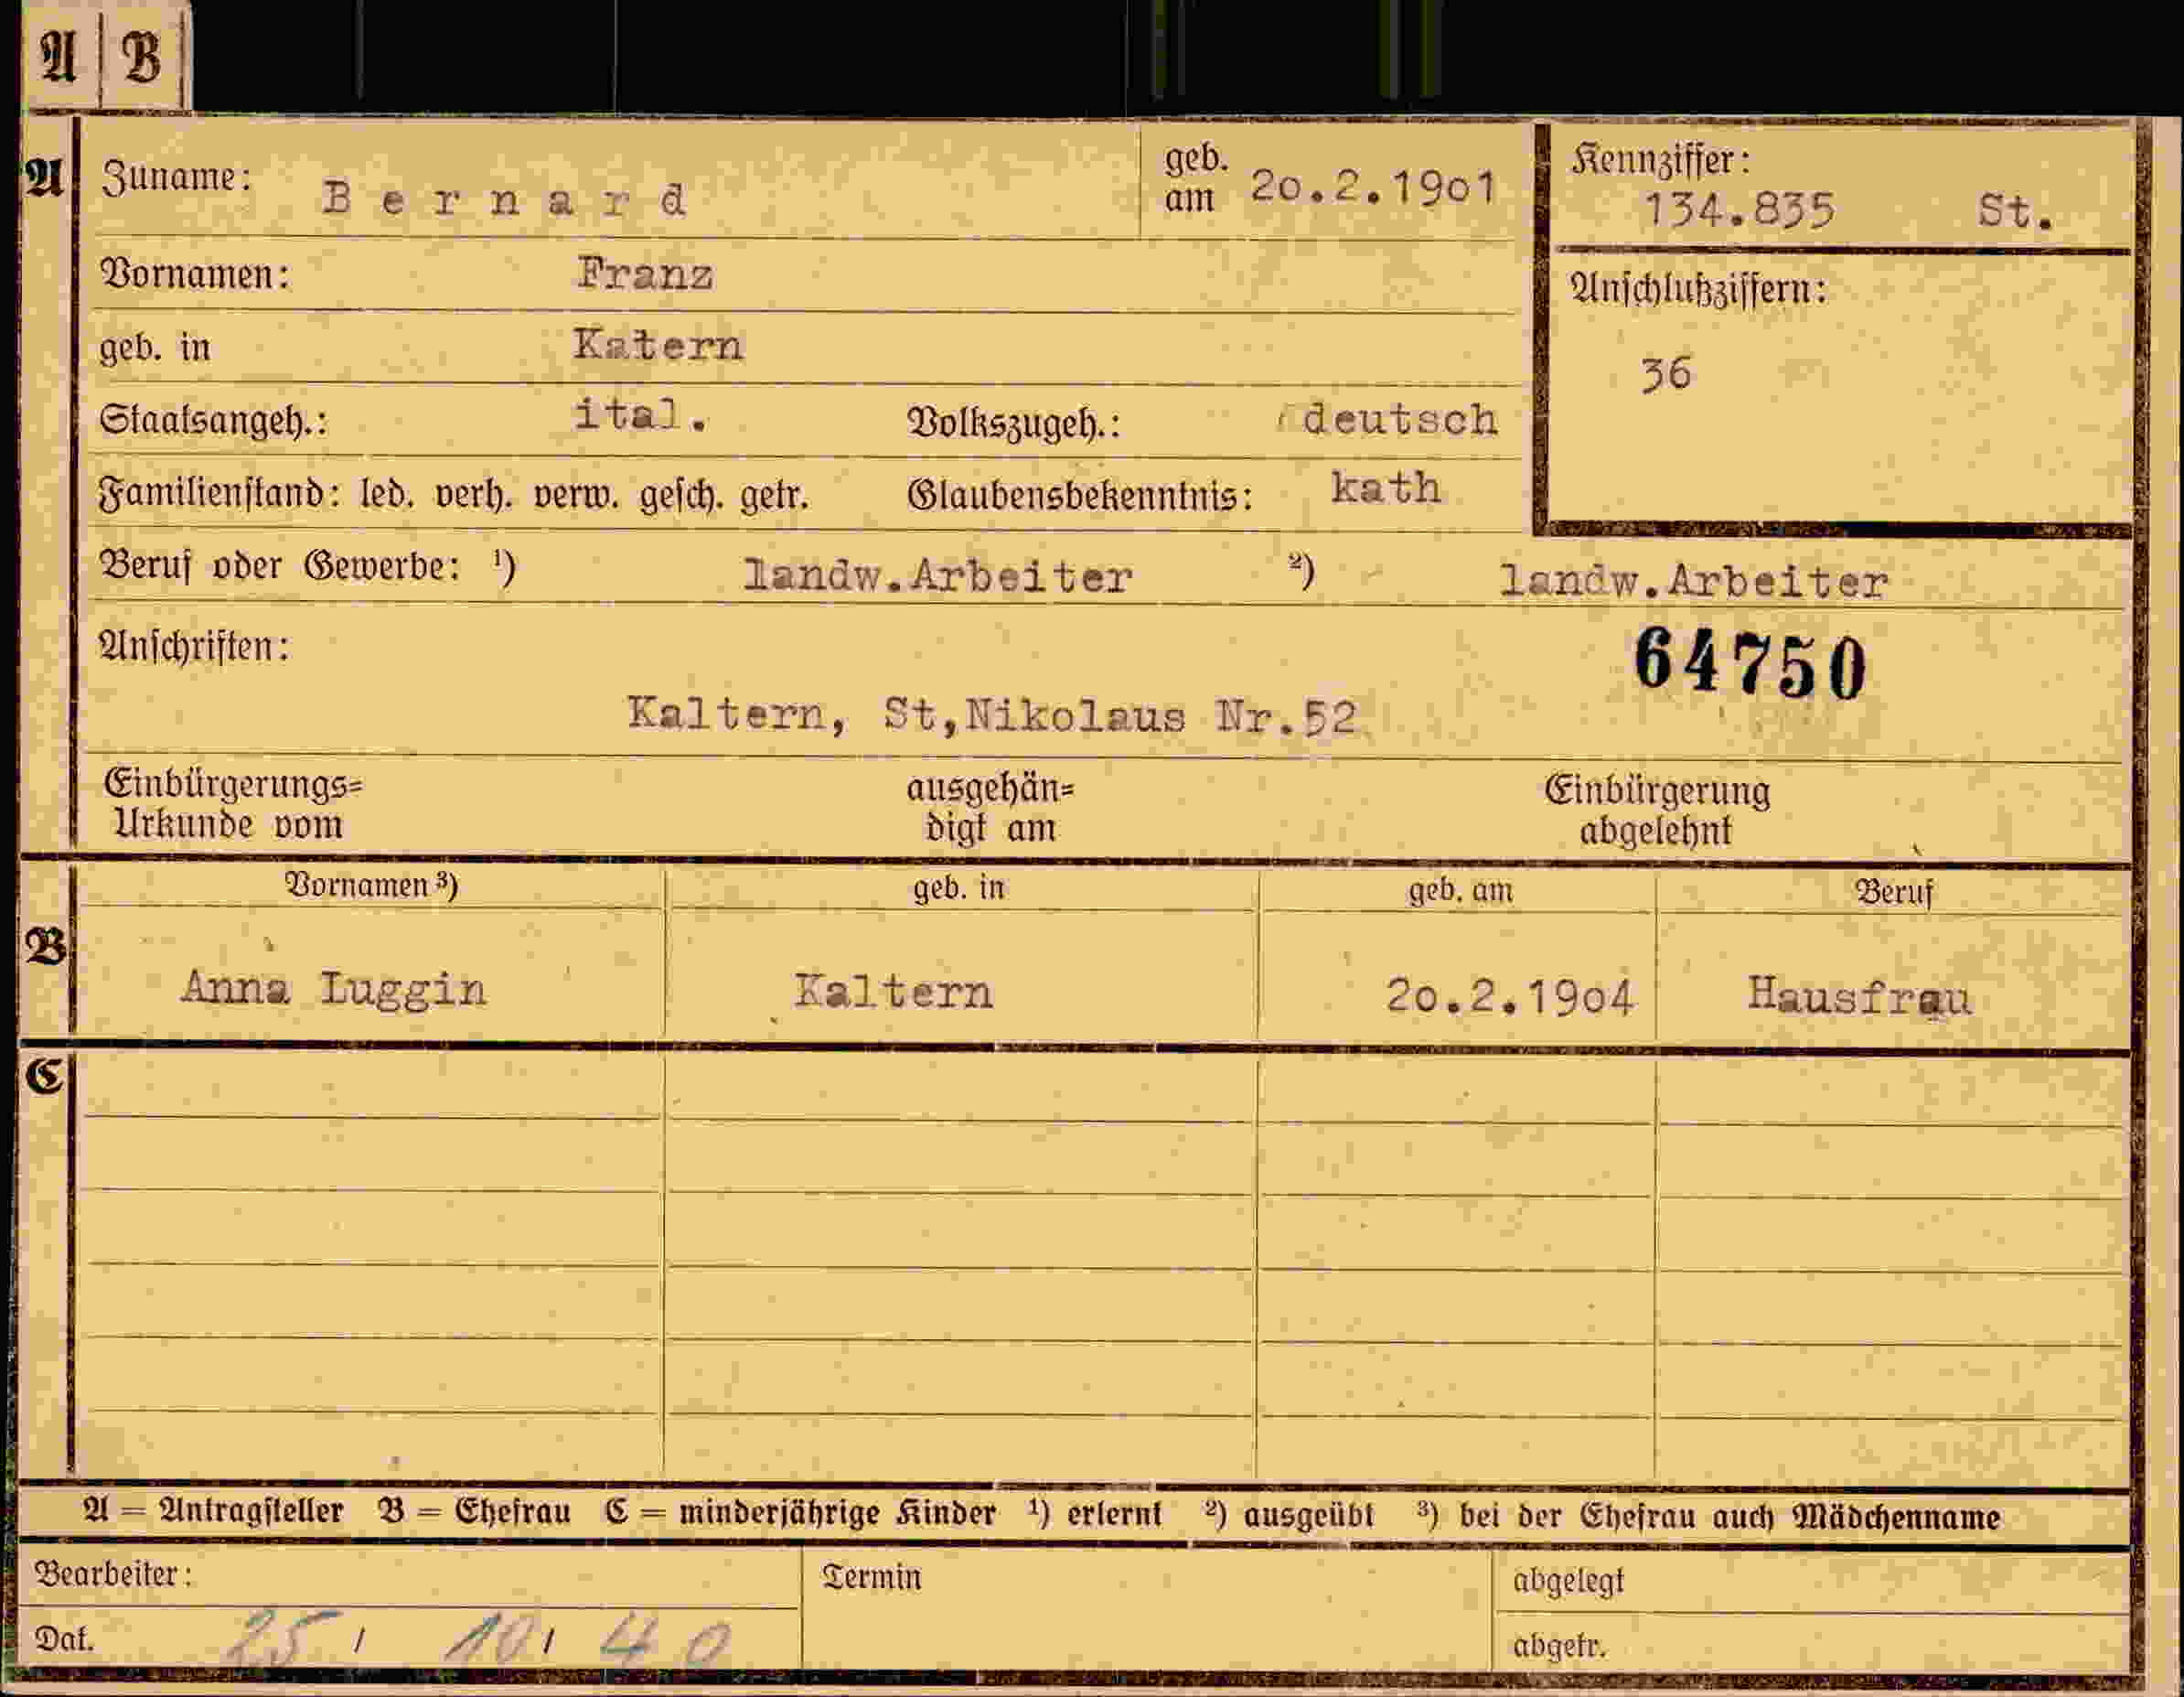 A B
A Zuname: Bernard geb. am 20.2.1901 Kennziffer: 134.835 St.
Vornamen: Franz
Anschlußziffern:
geb. in Katern
36
Staatsangeh.: ital. Volkszugeh.: deutsch
Familienstand: led. verh. verw. gesch. getr. Glaubensbekenntnis: kath
Beruf oder Gewerbe: ¹) landw.Arbeiter ²) landw.Arbeiter
Anschriften: 64750
Kaltern, St,Nikolaus Nr.52
Einbürgerungs= ausgehän= Einbürgerung
Urkunde vom digt am abgelehnt
Vornamen ³) geb. in geb. am Beruf
B Anna Luggin Kaltern 20.2.1904 Hausfrau
C
A = Antragsteller B = Ehefrau C = minderjährige Kinder ¹) erlernt ²) ausgeübt ³) bei der Ehefrau auch Mädchenname
Bearbeiter: Termin abgelegt
Dat. 25 / 10 / 40 abgetr.